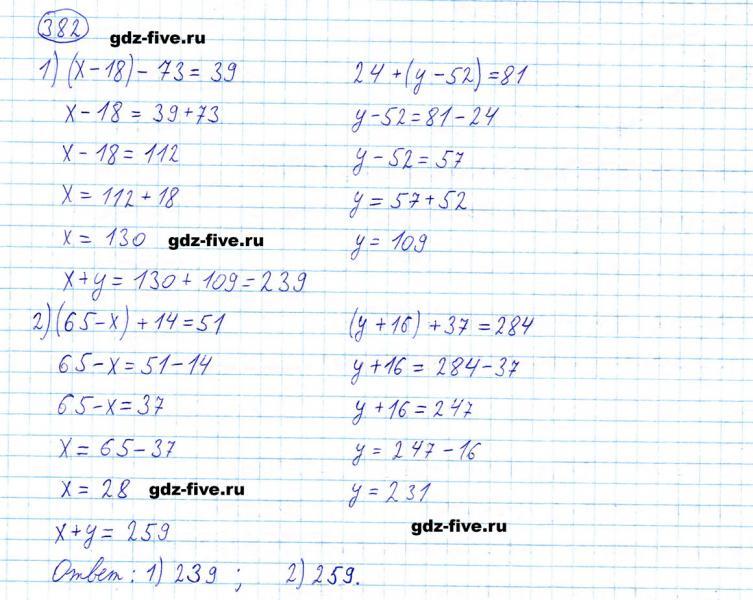 382 gdz-five.ru
1) (x - 18) - 73 = 39
x - 18 = 39 + 73
x - 18 = 112
x = 112 + 18
x = 130 gdz-five.ru
24 + (y - 52) = 81
y - 52 = 81 - 24
y - 52 = 57
y = 57 + 52
y = 109
x + y = 130 + 109 = 239
2) (65 - x) + 14 = 51
65 - x = 51 - 14
65 - x = 37
x = 65 - 37
x = 28 gdz-five.ru
(y + 16) + 37 = 284
y + 16 = 284 - 37
y + 16 = 247
y = 247 - 16
y = 231
gdz-five.ru
x + y = 259
Ответ: 1) 239 ; 2) 259.